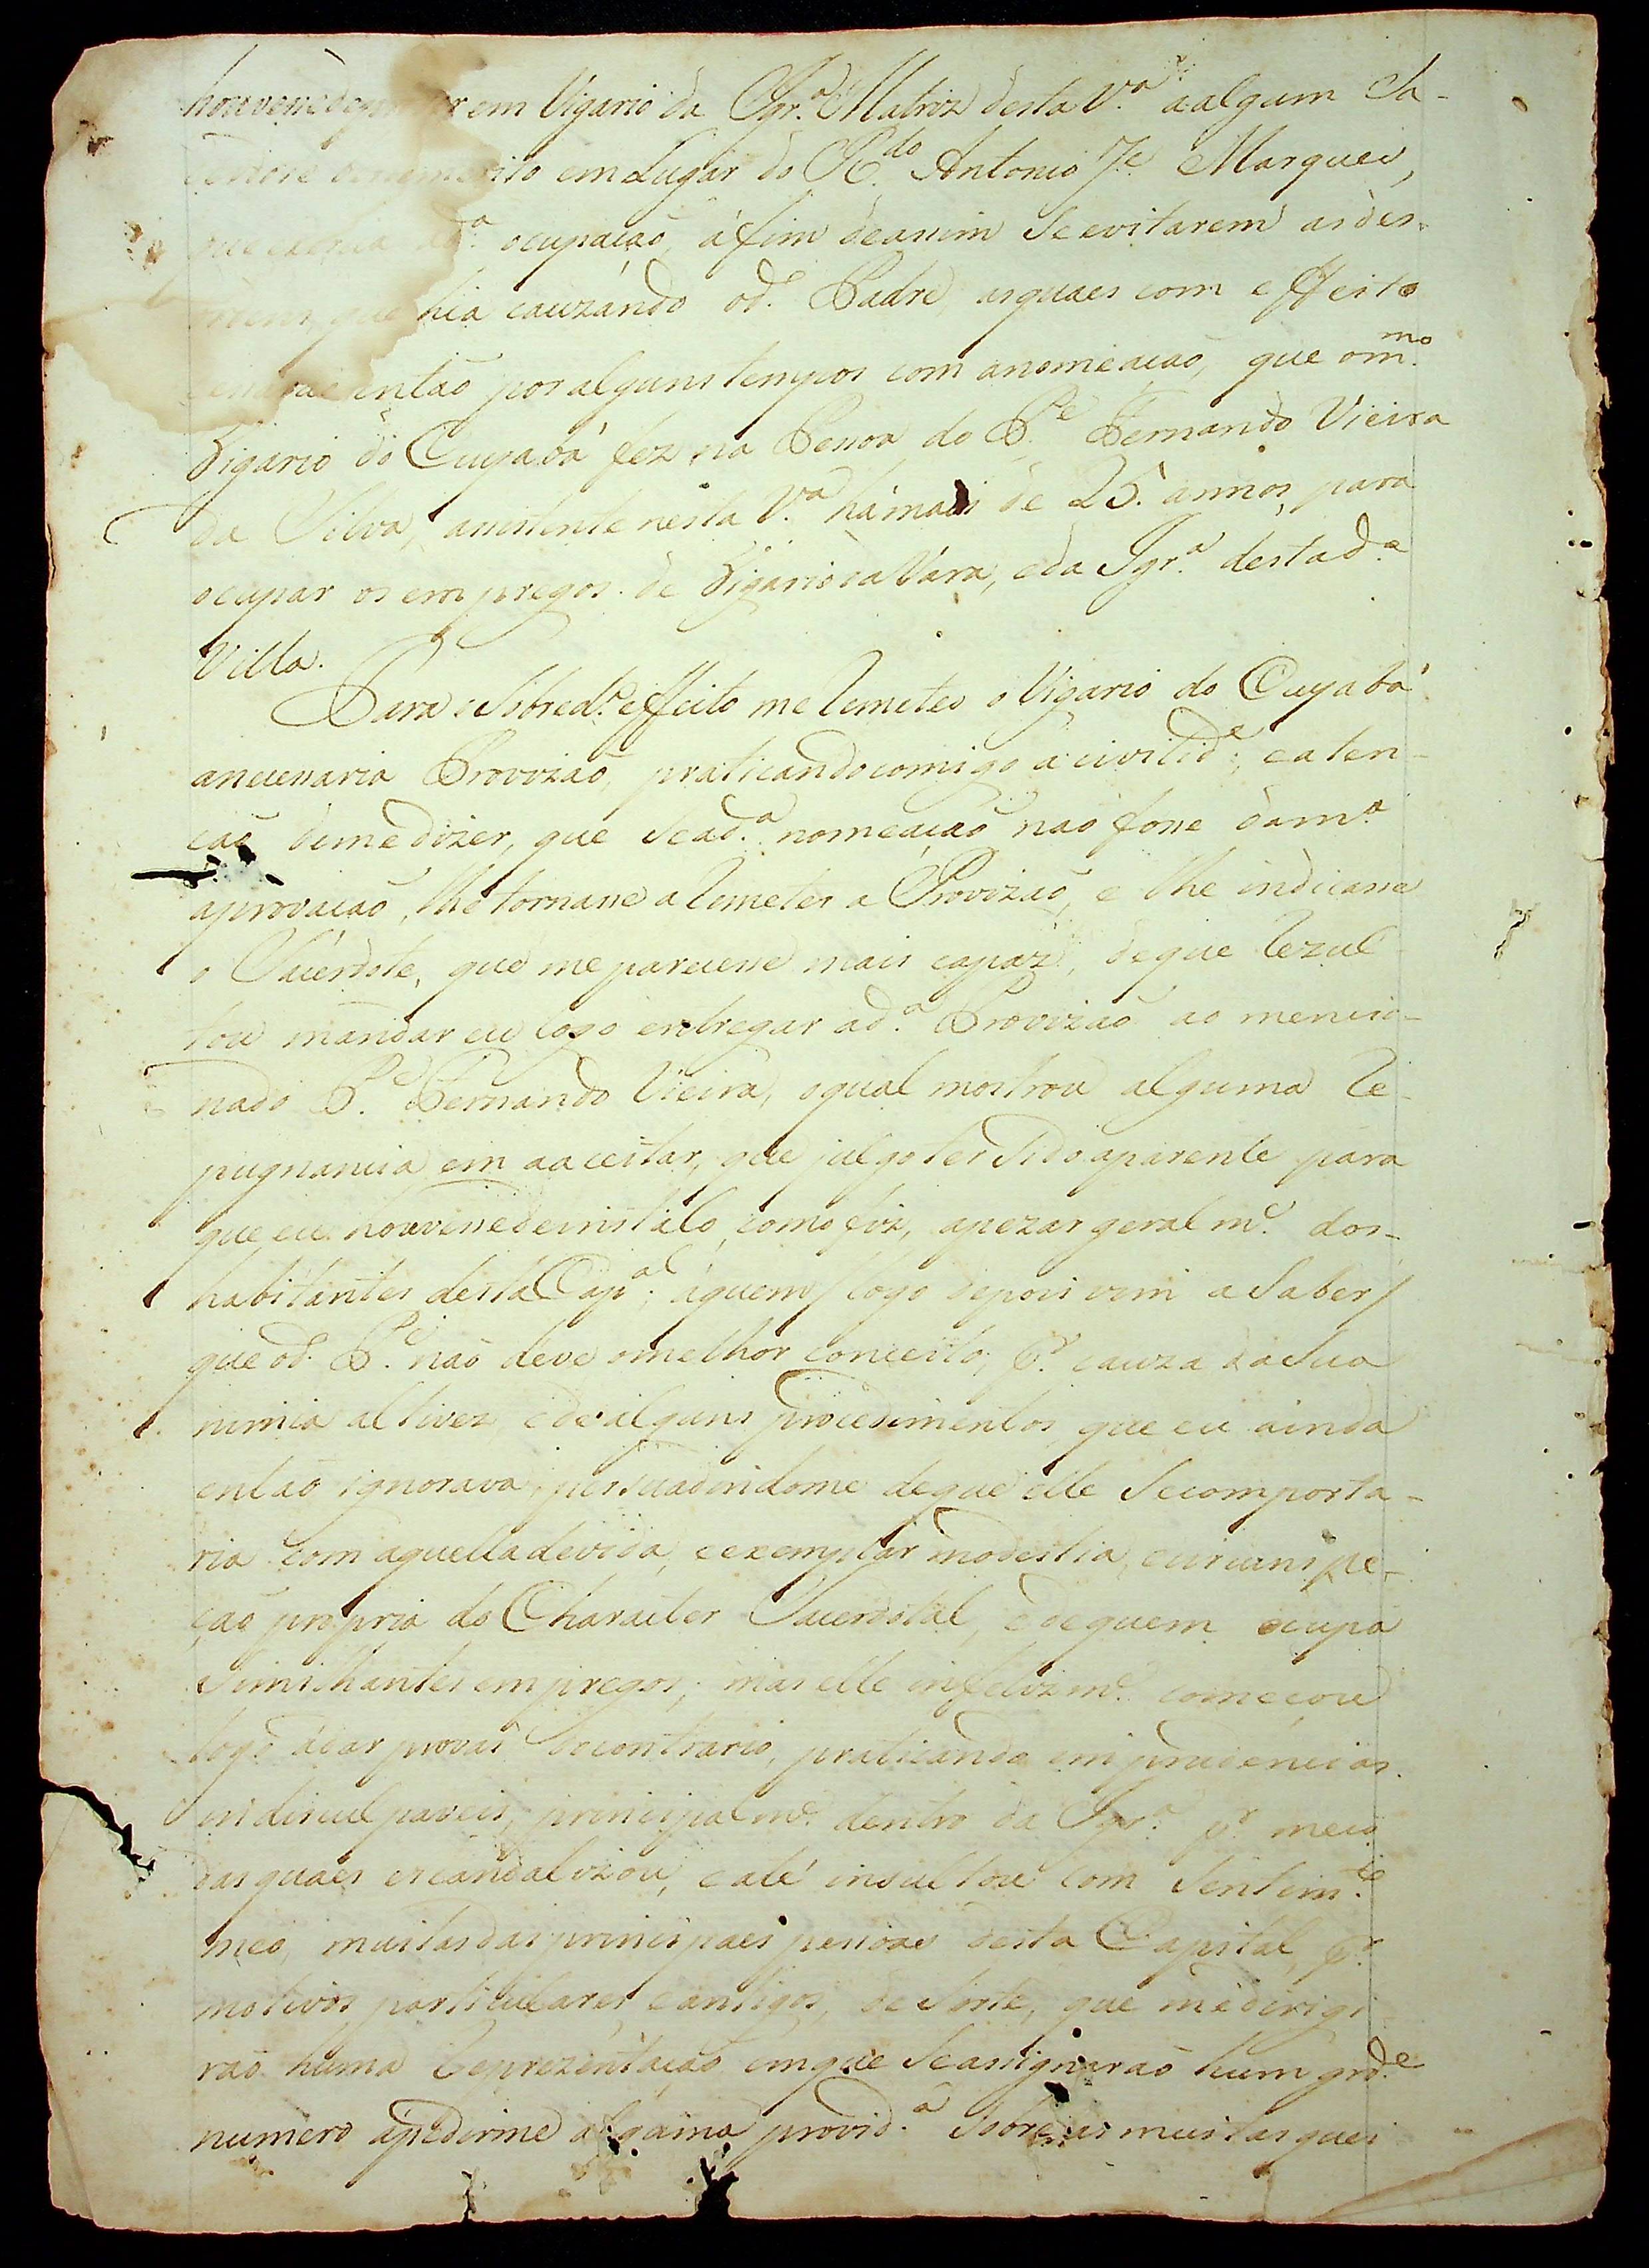 em Vigario da Igr.ª Matriz desta V.ª a algum Sa-
em Lugar do R.do Antonio Je. Marques,
ocupação, á fim de assim se evitarem as des-
hia cauzando o d.º Padre, as quaes com effeito
então por alguns tempos com a nomeação, que o m.mo
Vigario do Cuyabá fez na Pessoa do P.e Fernando Vieira
da Silva, assistente nesta V.ª há mais de 25. annos, para
ocupar os empregos de Vigario da Vara, e da Igr.ª desta d.ª
Villa.
Para o sobred.º effeito me remeteo o Vigario do Cuyabá
a necessaria Provizaõ, praticando comigo a civilid.e, e aten-
çaõ de me dizer, que se a d.ª nomeaçaõ naõ fosse da m.ª
aprovaçaõ, lhe tornasse a remeter a Provizaõ, e lhe indicasse
o Sacerdote, que me parecesse mais capaz, de que rezul-
tou mandar eu logo entregar a d.ª Provizaõ ao mencio-
nado P.e Fernando Vieira, o qual mostrou alguma re-
pugnancia em a aceitar, que julgo ter sido aparente para
que eu houvesse de instálo, como fiz, apezar geralm.e dos
habitantes desta Cap.al; áquem / logo depois vim a saber /
que o d.º P.e naõ deve o melhor conceito, p.r cauza da sua
nimia altivez, e de alguns procedimentos, que eu ainda
entaõ ignorava, persuadindome de que elle se comporta-
ria com aquella devida, e exemplar modestia, e circunspe-
çaõ propria do Character Sacerdotal, e de quem ocupa
similhantes empregos; mas elle infelizm.e começou
logo á dar provas do contrario, praticando imprudencias
indisculpaveis, principalm.e dentro da Igr.ª p.r meio
das quaes escandalizou, e até insultou com sentim.to
meo, muitas das principaes pessoas desta Capital, p.r
motivos particulares, e antigos, de sorte, que me dirigi-
raõ huma Reprezentaçaõ em que se assignaraõ hum gr.de
numero á pedirme alguma provid.ª sobre as muitas quei